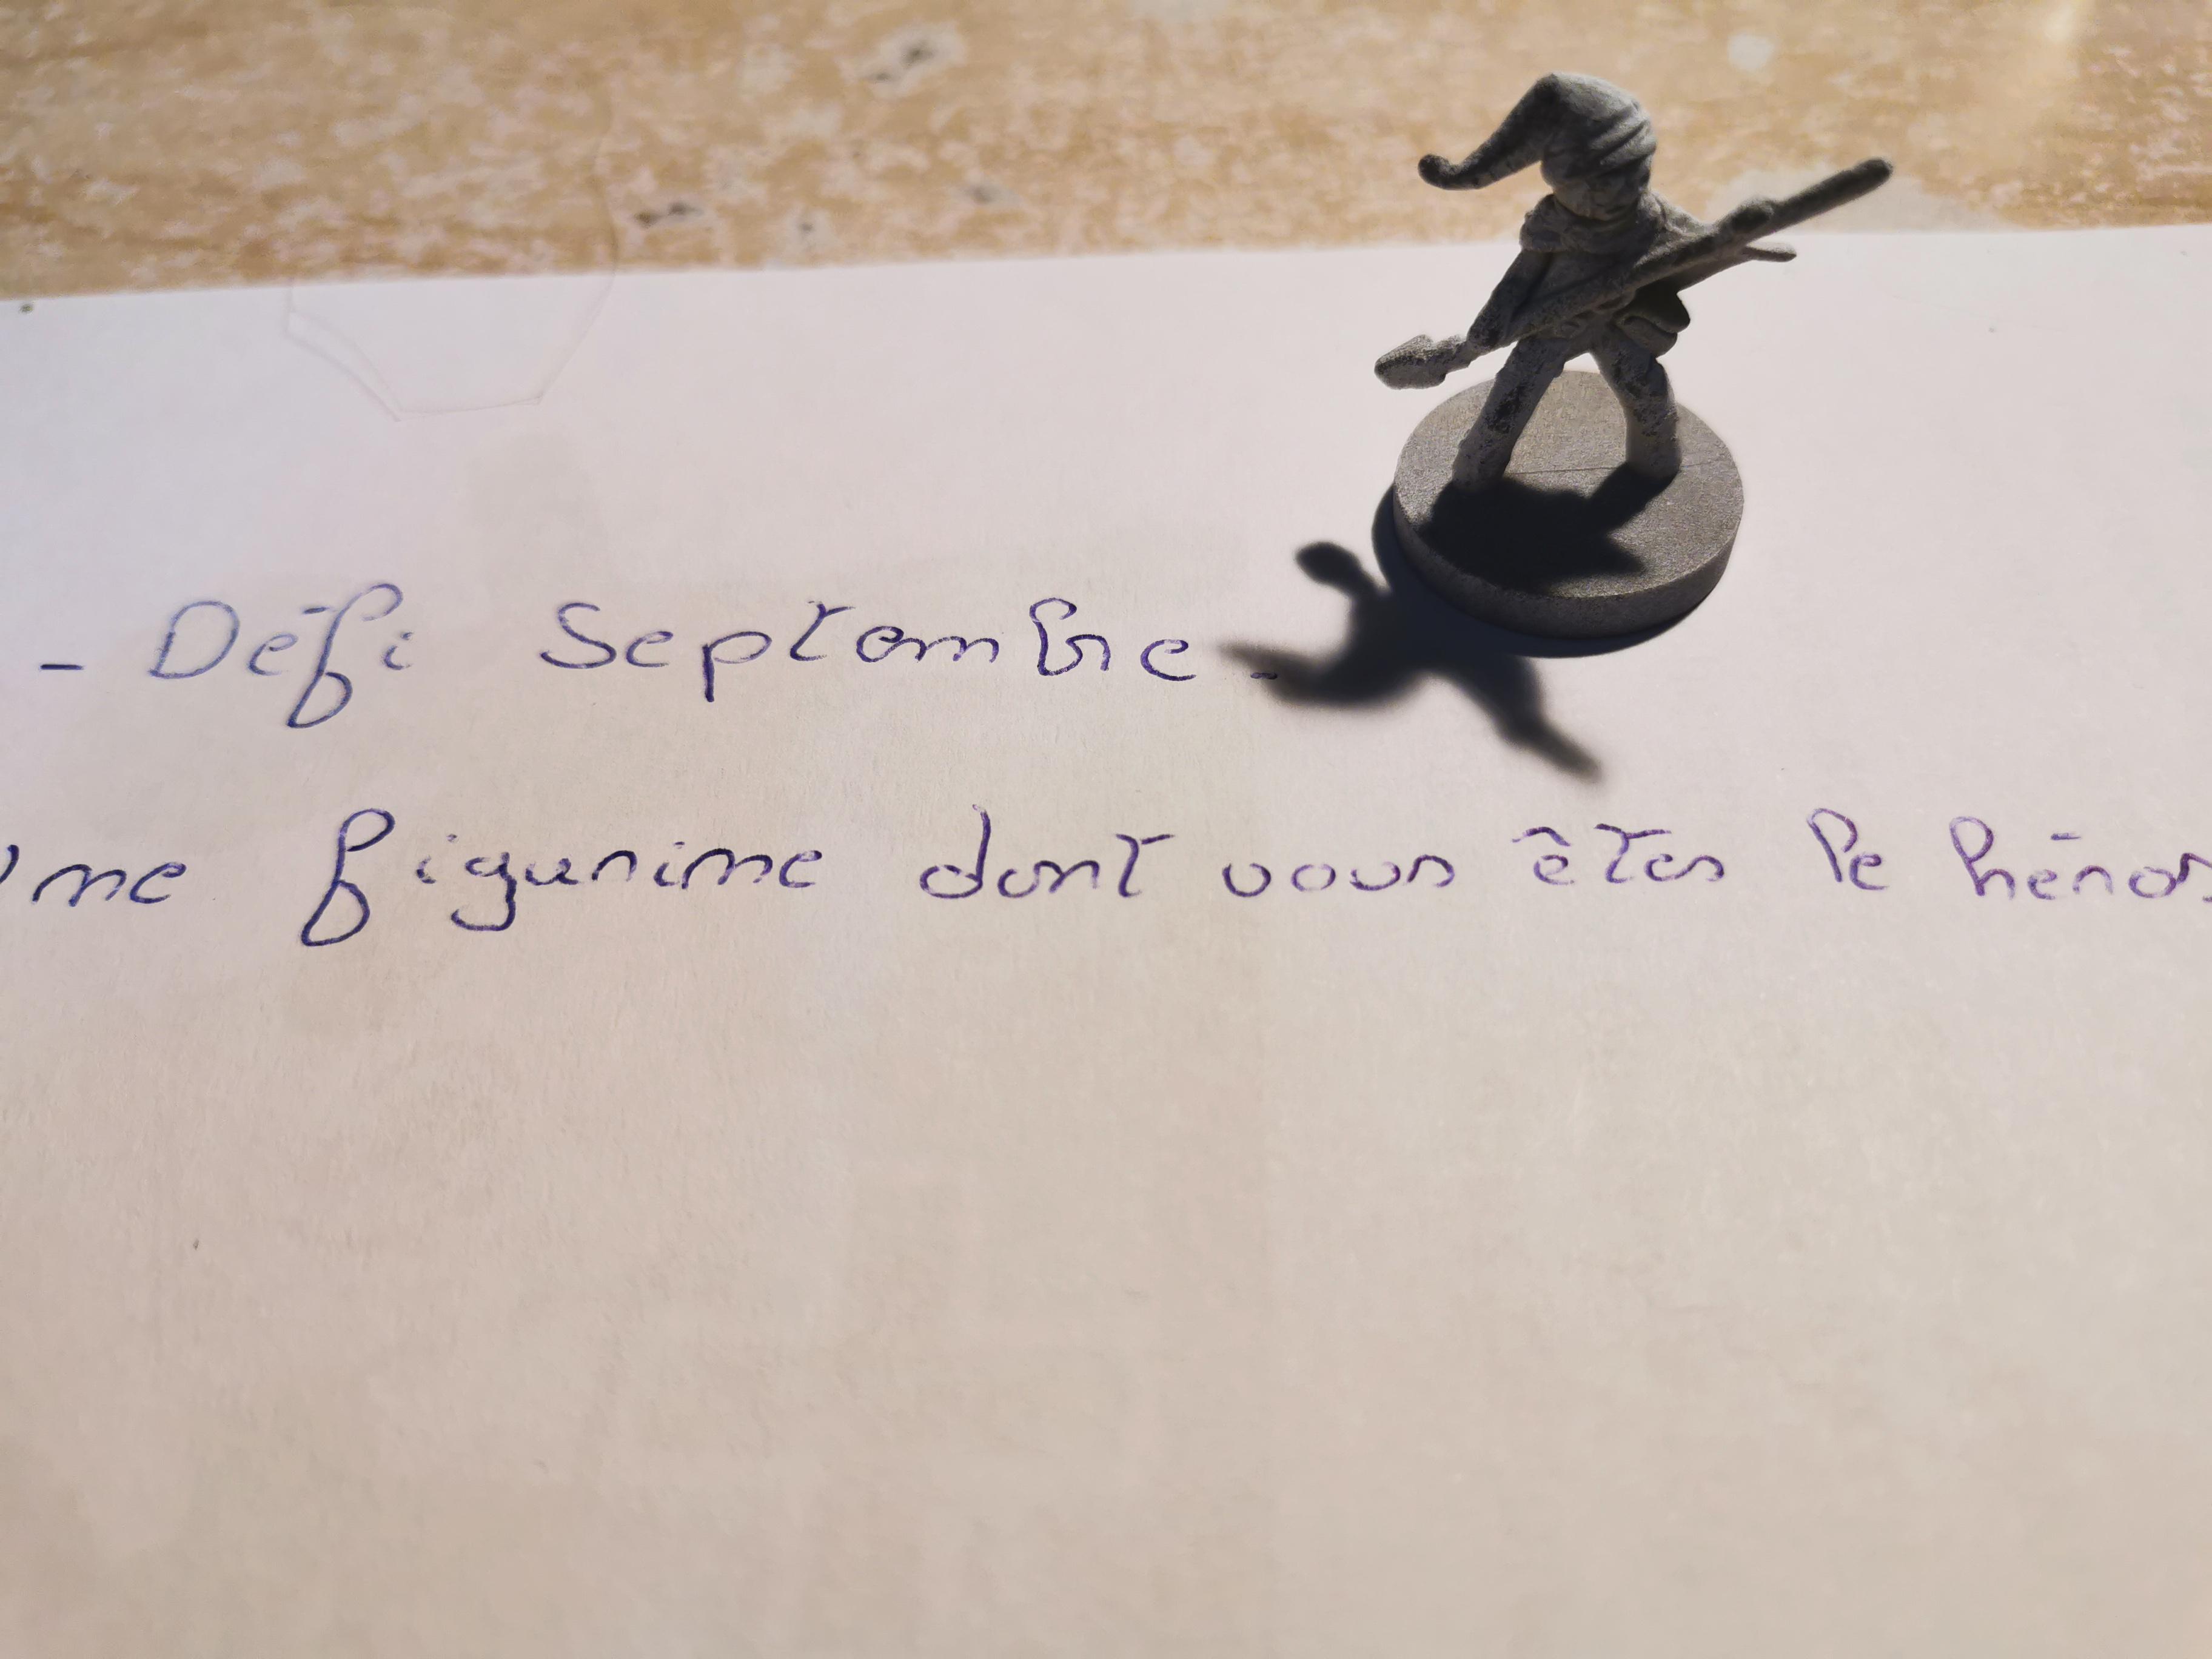 - Défi Septembre -
Une figurine dont vous êtes le héros